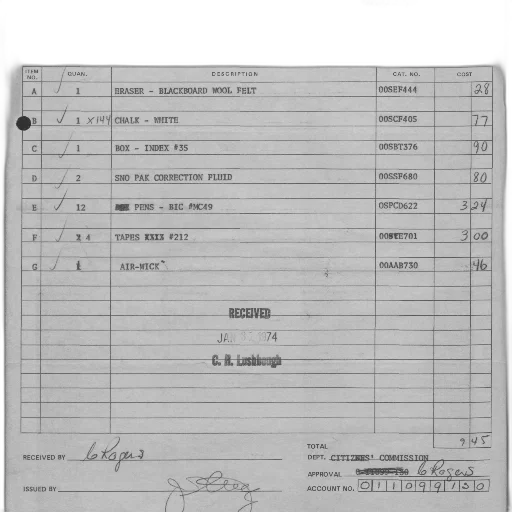 ITEM NO. QUAN. DESCRIPTION CAT. NO. COST
A 1 ERASER - BLACKBOARD WOOL FELT 00SEF444 28
B 1 x144 CHALK - WHITE 00SCF405 77
C 1 BOX - INDEX #35 00SBT376 90
D 2 SNO PAK CORRECTION FLUID 00SSF680 80
E 12 PENS - BIC #MC49 0SPCD622 3 24
F 4 TAPES #212 3 00
G 1 AIR-WICK 00AAB730 46
RECEIVED
JAN 1974
C. R. Lushbough
TOTAL 9 45
RECEIVED BY C Rogers DEPT. CITIZENS' COMMISSION
APPROVAL C Rogers
ISSUED BY ACCOUNT NO. 011099130